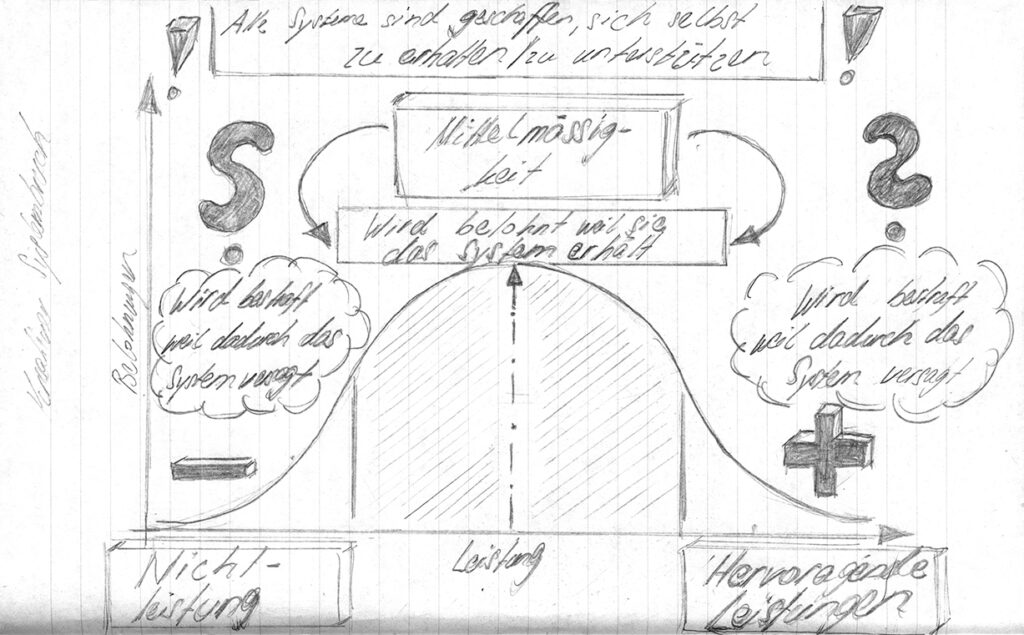 Alle Systeme sind geschaffen, sich selbst
zu erhalten/zu unterstützen
!
!
Mittelmässig-
keit
Wird belohnt weil sie
das System erhält
Wird bestraft
weil dadurch das
System versagt
Wird bestraft
weil dadurch das
System versagt
Belohnungen
Nicht-
leistung
Leistung
Hervoragende
Leistungen